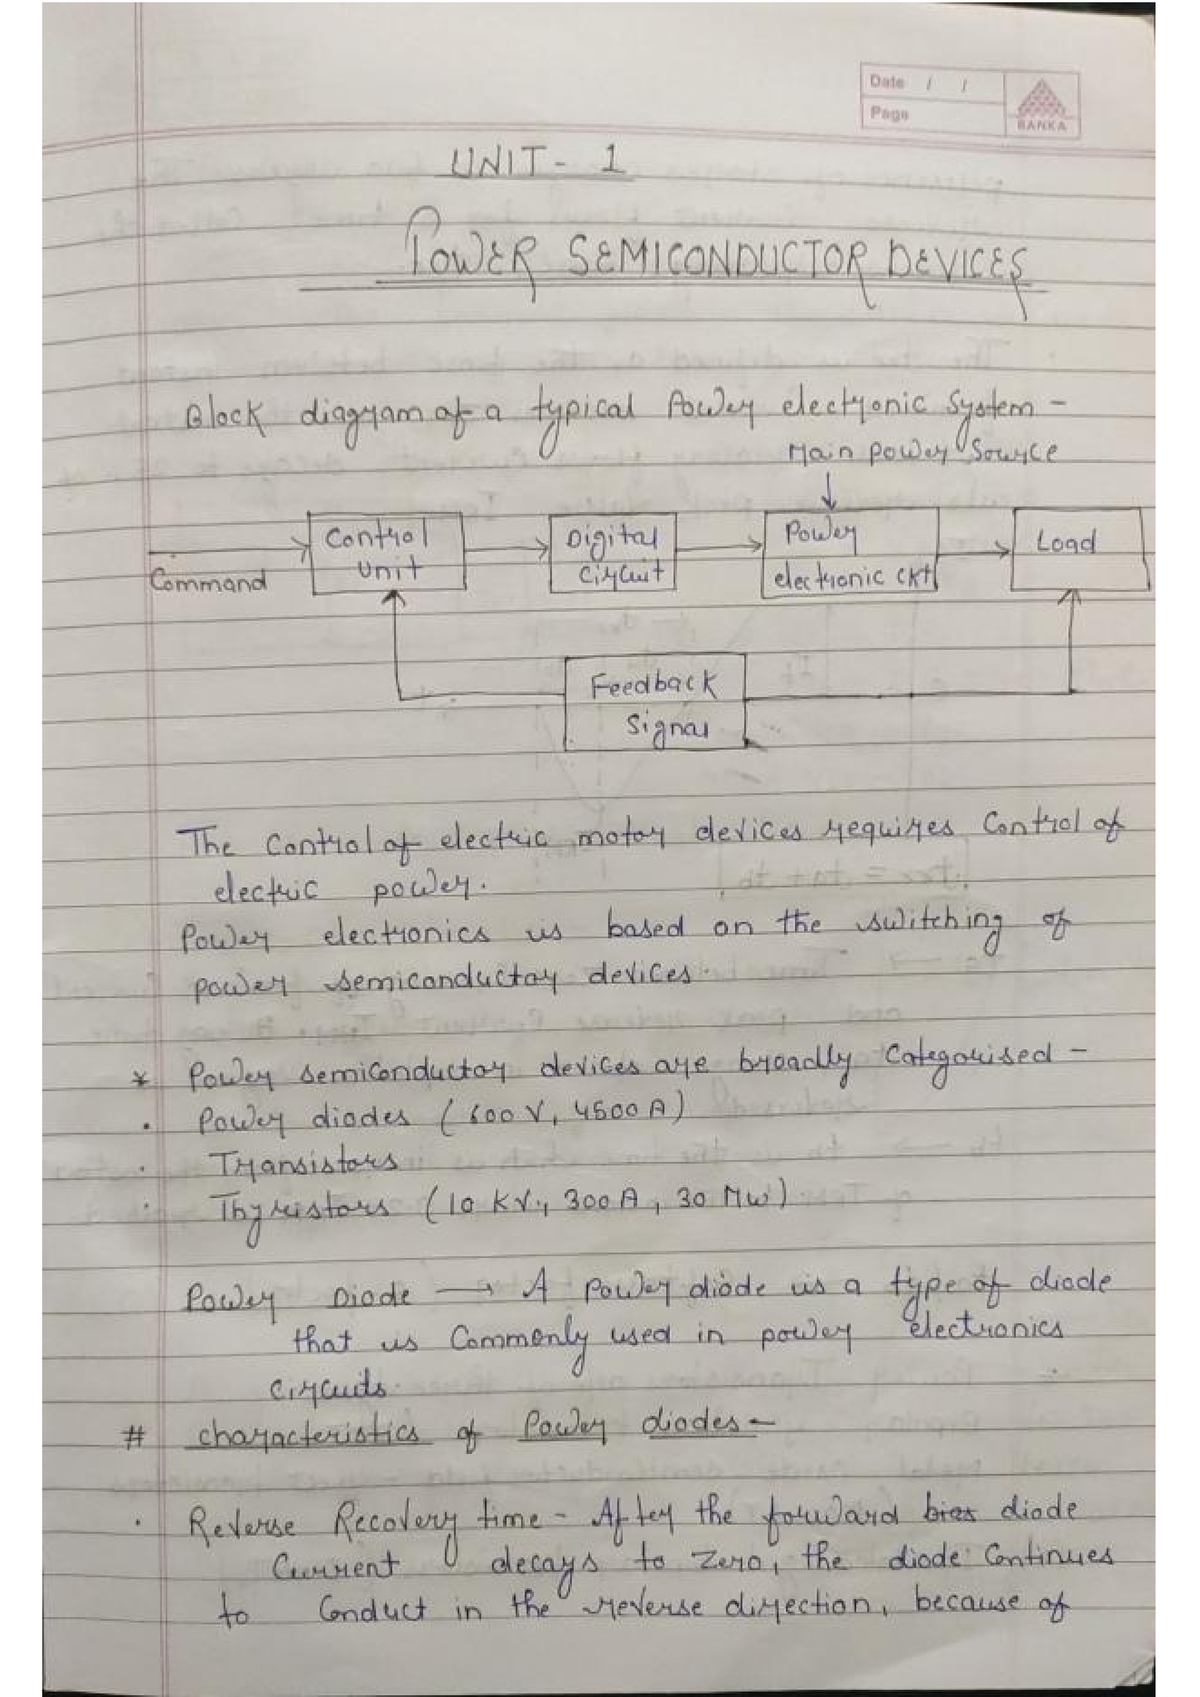 Date / /
Page
BANKA
UNIT - 1
POWER SEMICONDUCTOR DEVICES
Block diagram of a typical Power electronic System -
Main power Source
Command
Control
Unit
Digital
Circuit
Power
electronic ckt
Load
Feedback
Signal
The Control of electric motor devices requires Control of
electric power.
Power electronics is based on the switching of
power semiconductor devices.
* Power semiconductor devices are broadly Categorised -
. Power diodes ( 600 V, 4500 A )
. Transistors
. Thyristors ( 10 KV, 300 A, 30 MW )
Power Diode → A power diode is a type of diode
that is Commonly used in power electronics
circuits.
# characteristics of Power diodes -
. Reverse Recovery time - After the forward bias diode
Current decays to zero, the diode Continues
to Conduct in the reverse direction, because of